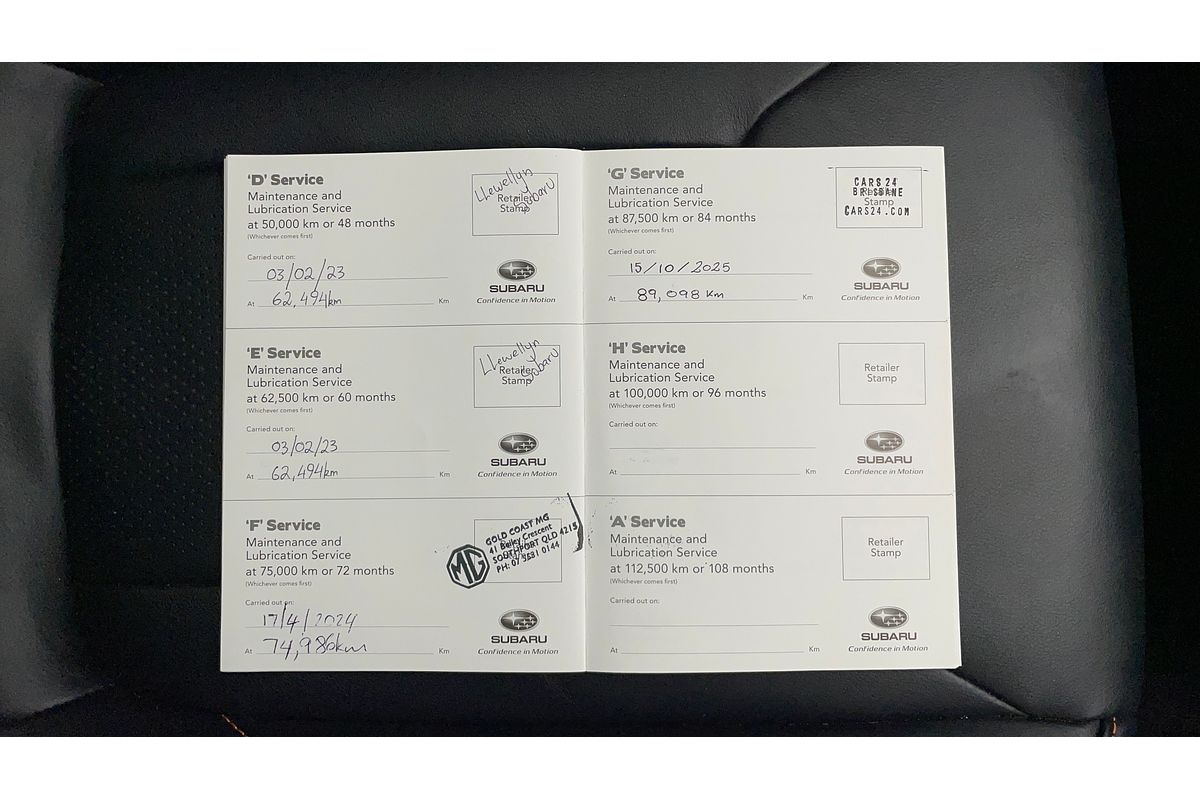 'D' Service
Maintenance and
Lubrication Service
at 50,000 km or 48 months
(Whichever comes first)
Carried out on:
03/02/23
At 62,494km Km
Llewellyn
Subaru
Retailer
Stamp
SUBARU
Confidence in Motion
'E' Service
Maintenance and
Lubrication Service
at 62,500 km or 60 months
(Whichever comes first)
Carried out on:
03/02/23
At 62,494km Km
Llewellyn
Subaru
Retailer
Stamp
SUBARU
Confidence in Motion
'F' Service
Maintenance and
Lubrication Service
at 75,000 km or 72 months
(Whichever comes first)
Carried out on:
17/4/2024
At 74,986km Km
MG
GOLD COAST MG
41 Bailey Crescent
SOUTHPORT QLD 4215
PH: 07 5581 0144
SUBARU
Confidence in Motion
'G' Service
Maintenance and
Lubrication Service
at 87,500 km or 84 months
(Whichever comes first)
Carried out on:
15/10/2025
At 89,098 Km Km
CARS24
BRISBANE
CARS24.COM
Retailer
Stamp
SUBARU
Confidence in Motion
'H' Service
Maintenance and
Lubrication Service
at 100,000 km or 96 months
(Whichever comes first)
Carried out on:
At Km
Retailer
Stamp
SUBARU
Confidence in Motion
'A' Service
Maintenance and
Lubrication Service
at 112,500 km or 108 months
(Whichever comes first)
Carried out on:
At Km
Retailer
Stamp
SUBARU
Confidence in Motion